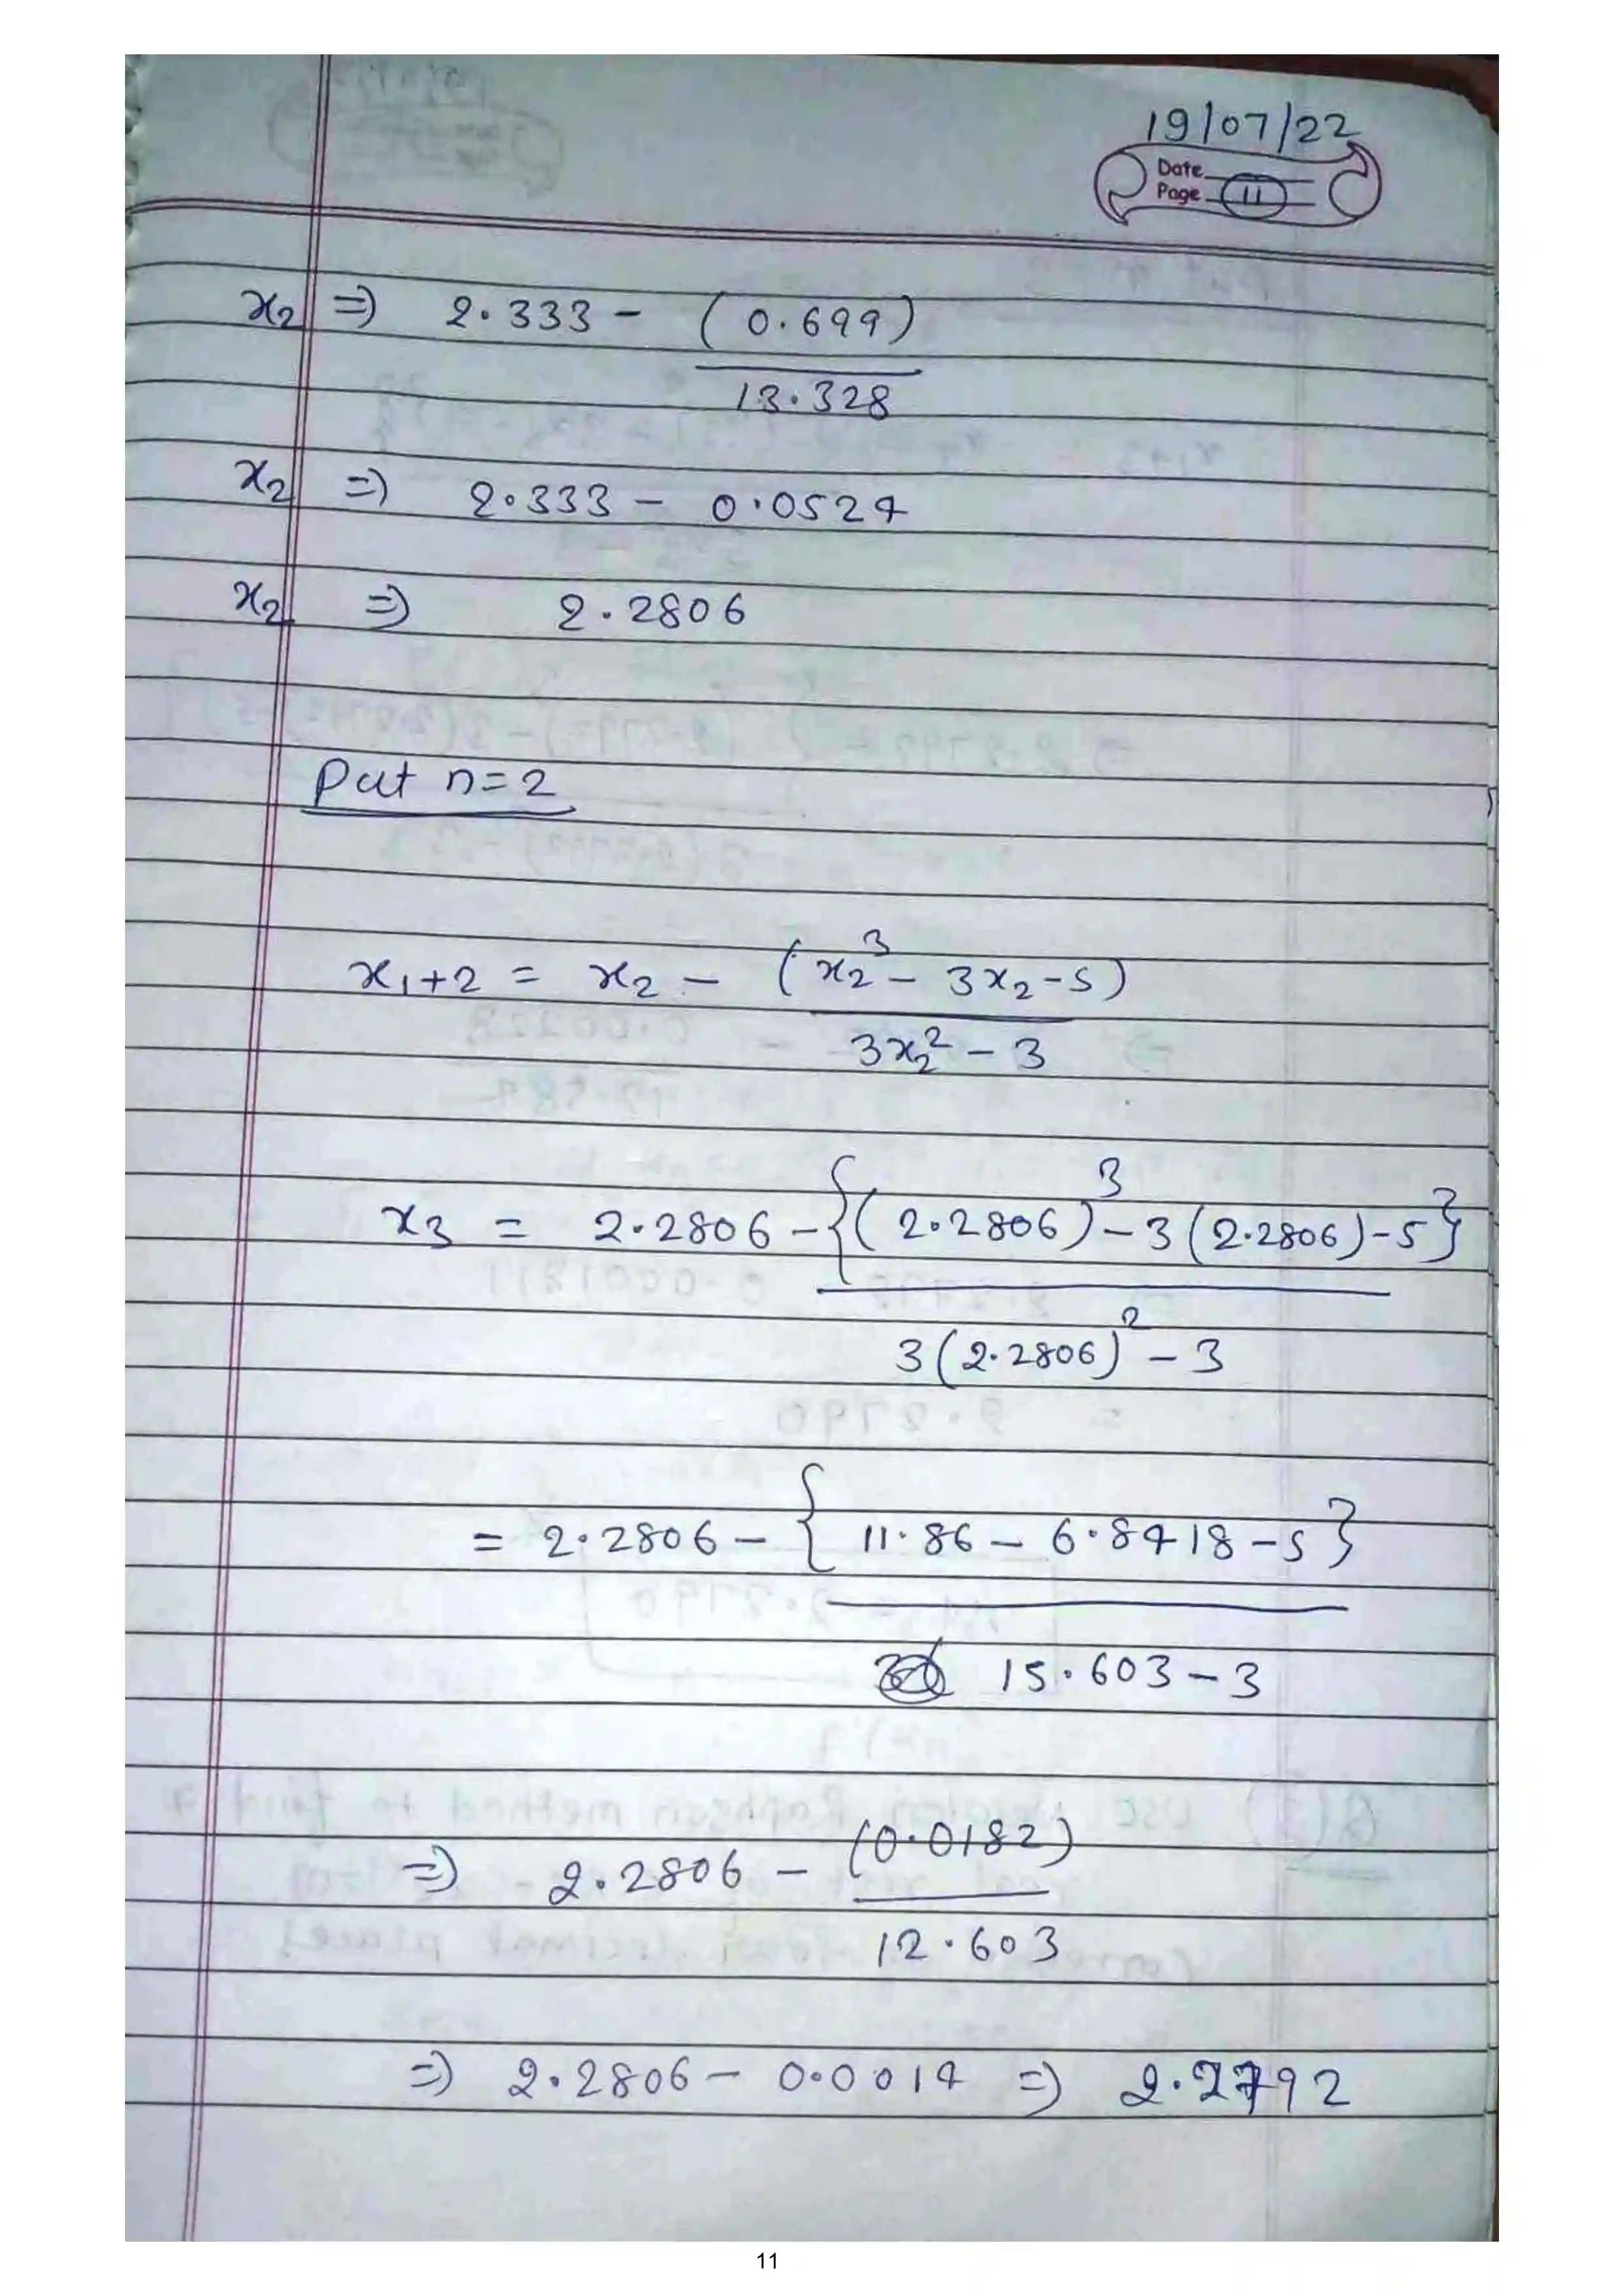 19/07/22
Date
Page 11
x₂ ⇒ 2.333 - (0.699)
13.328
x₂ ⇒ 2.333 - 0.0524
x₂ ⇒ 2.2806
Put n=2
x₁+2 = x₂ - (x₂³ - 3x₂ - 5)
3x₂² - 3
x₃ = 2.2806 - {(2.2806)³ - 3(2.2806) - 5}
3(2.2806)² - 3
= 2.2806 - {11.86 - 6.8418 - 5}
15.603 - 3
⇒ 2.2806 - (0.0182)
12.603
⇒ 2.2806 - 0.0014 ⇒ 2.2792
11